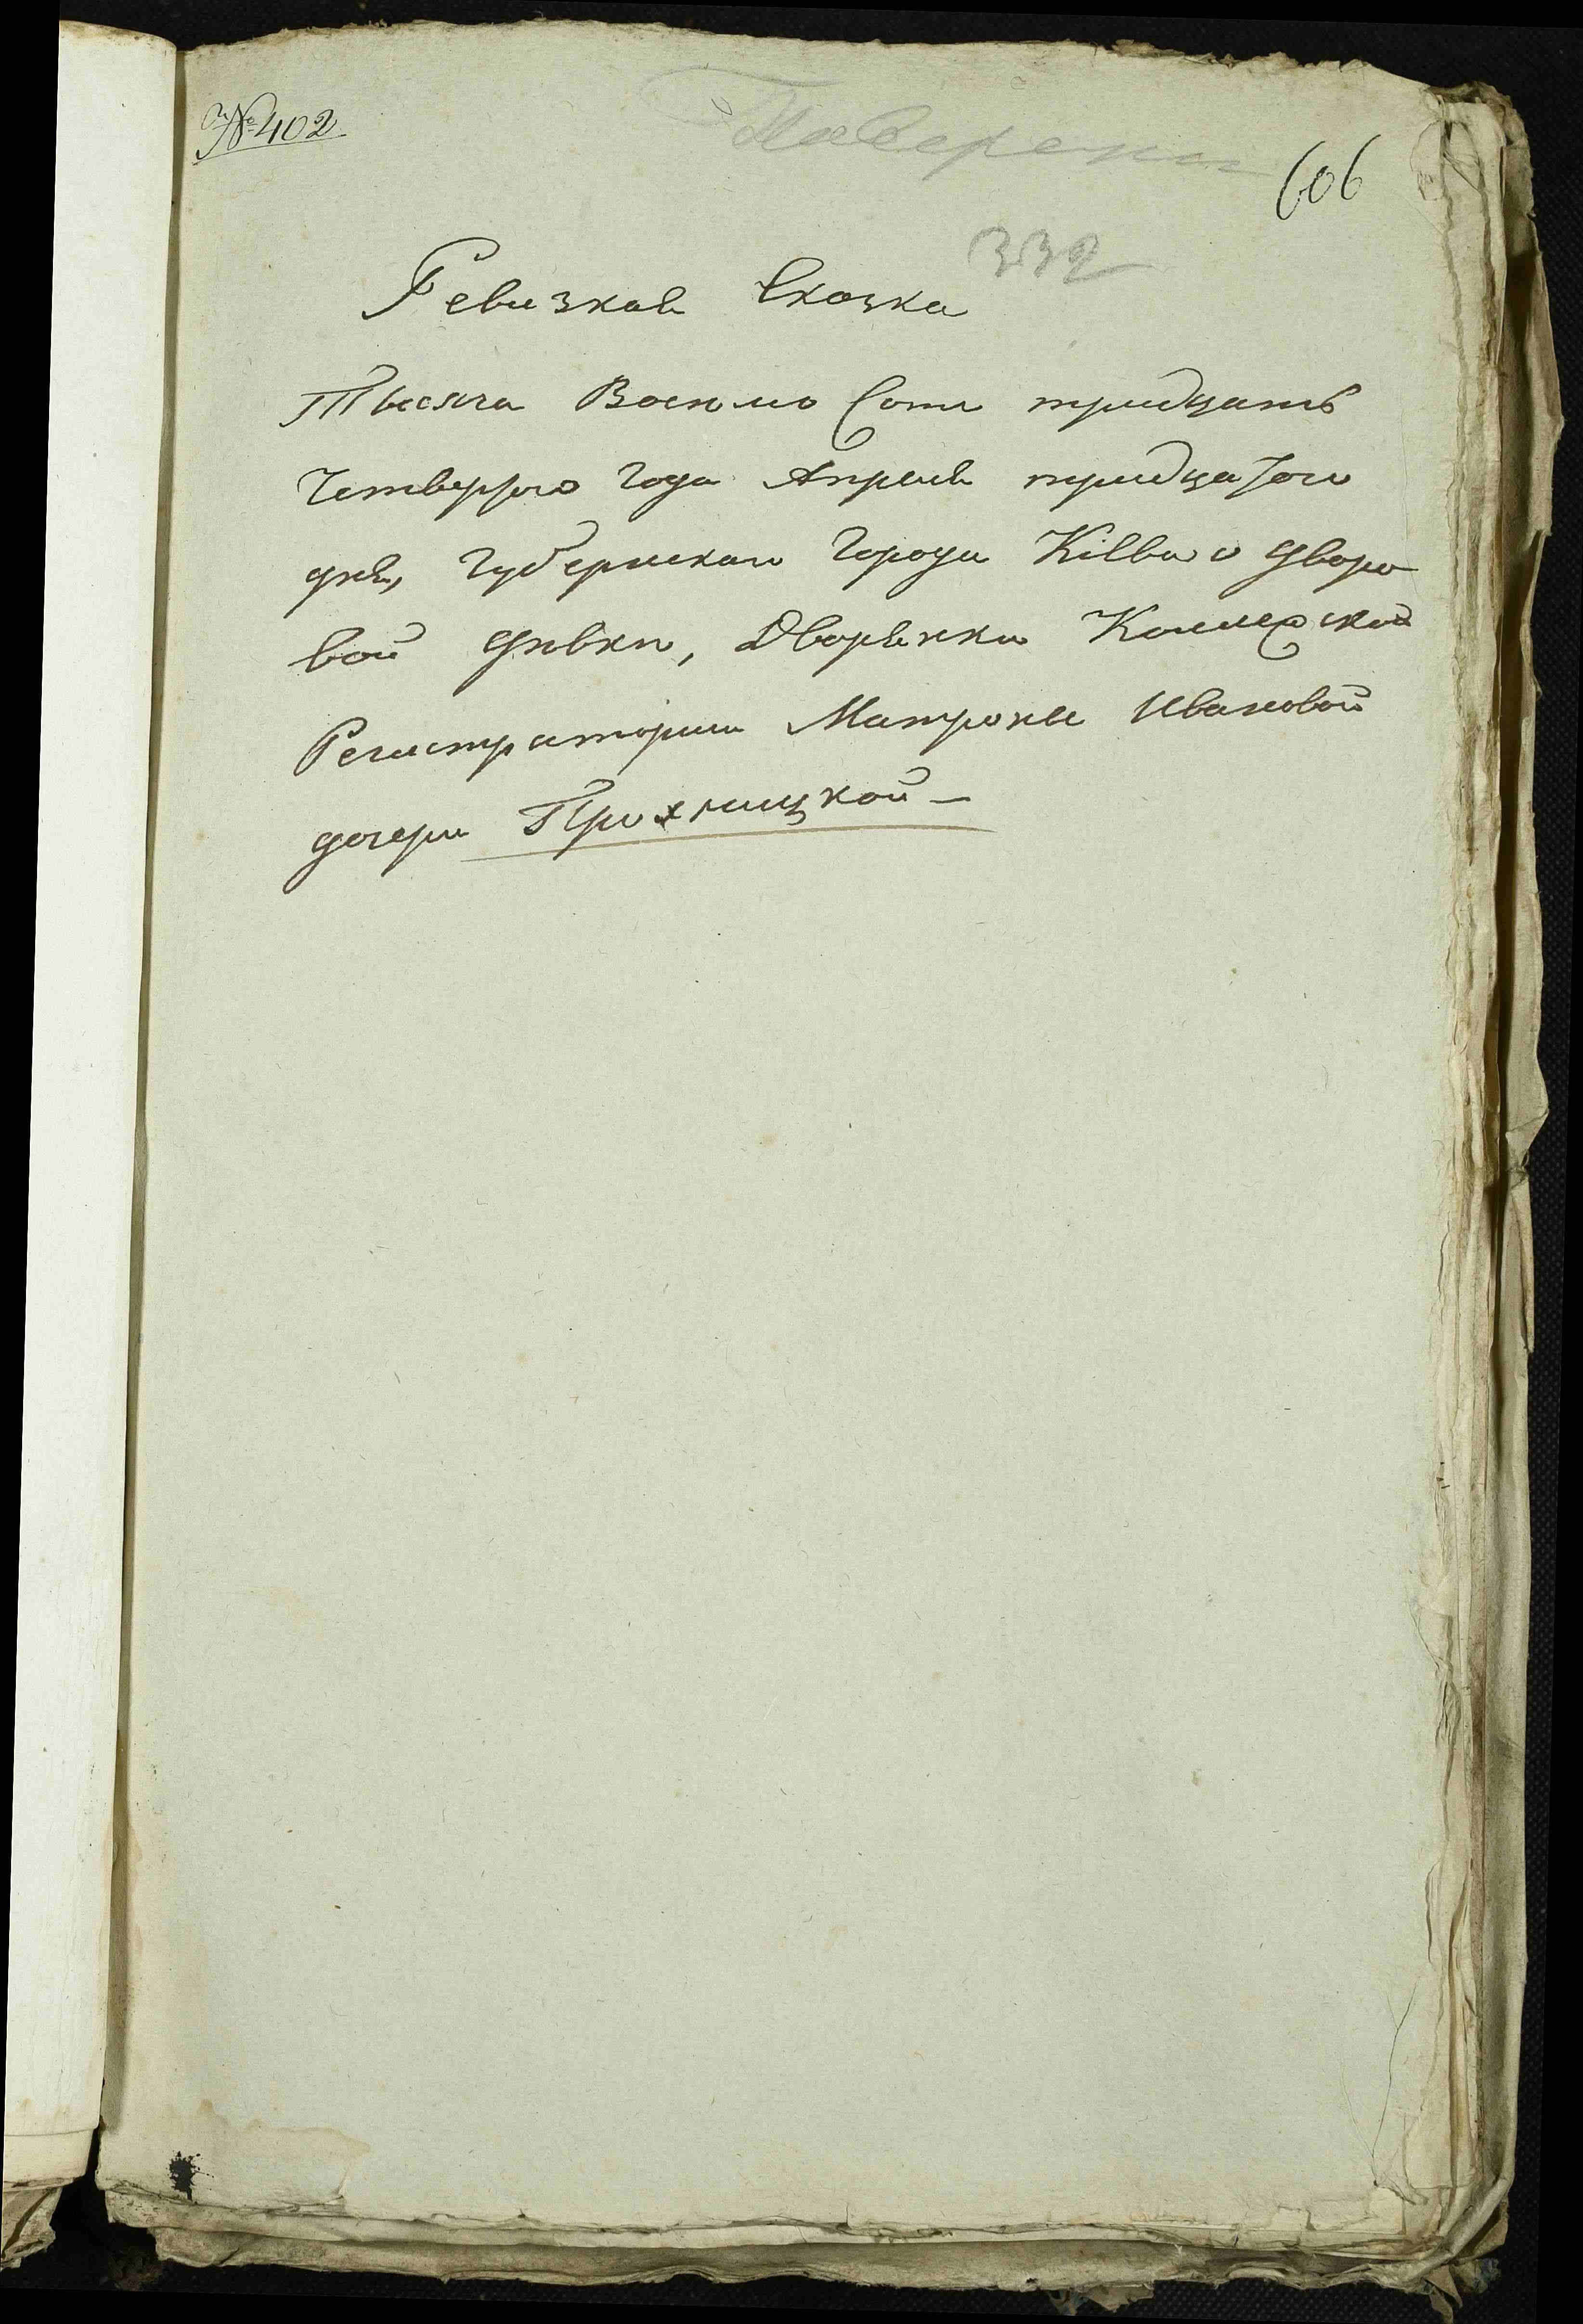 № 402
Поверены
606
332
Ревизкая Сказка
Тысяча Восемо Сотъ тридцать
Четвертого Года Апреля тридцатого
дня, Губернскаго Города Кіева о дворо
вой дѣвки, Дворянки Коллежской
Регистраторши Матроны Ивановой
дочери